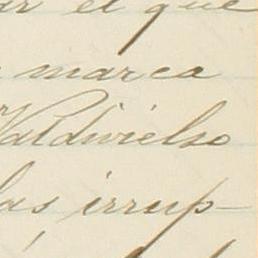 ar el que
marca
Valdivielso
las irrup-